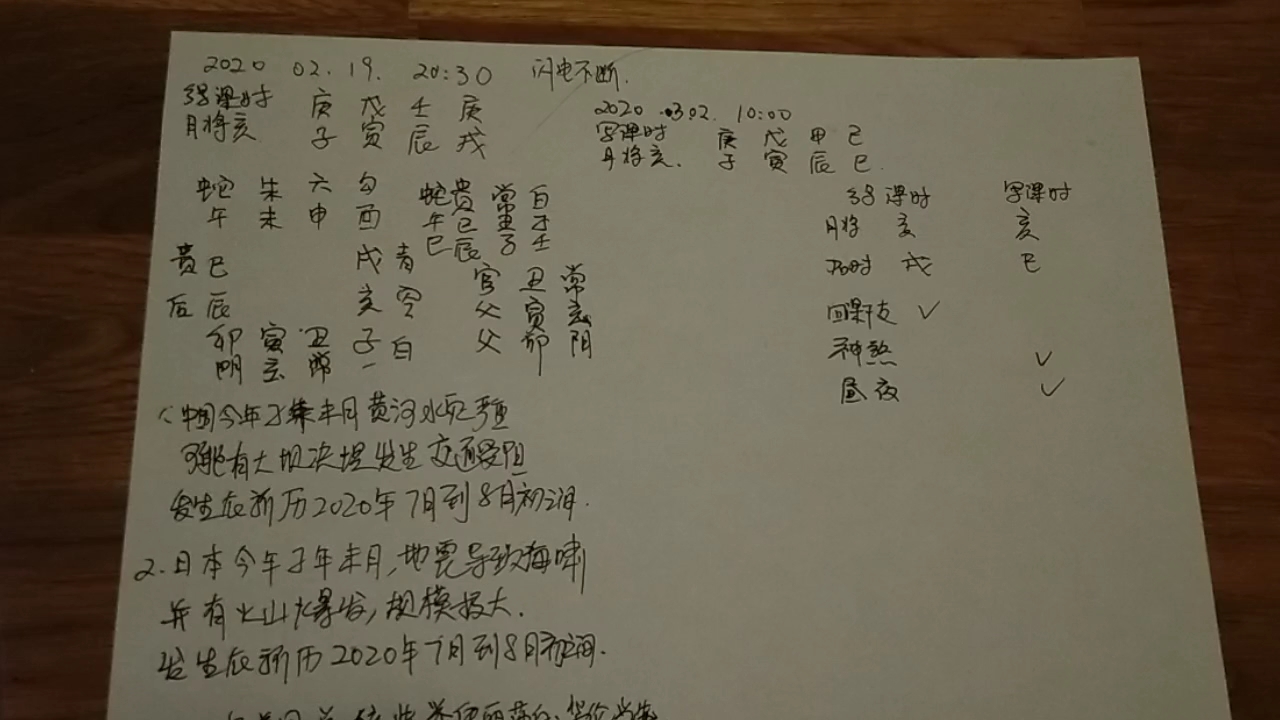 2020 02.19. 20:30 闪电不断.
课时 庚 戊 壬 庚
月将亥 子 寅 辰 戌
2020.03.02. 10:00
写课时 庚 戊 甲 己
月将亥. 子 寅 辰 巳.
蛇 朱 六 勾
午 未 申 酉
贵巳 戌青
后辰 亥空
卯 寅 丑 子白
阴 玄 常
蛇贵常白
午巳丑子
巳辰子壬
官 丑 常
父 寅 玄
父 卯 阴
课时 写课时
月将 亥 亥
占时 戌 巳
四课干支 ✓
神煞 ✓
昼夜 ✓
1.中国今年子年未月黄河水灾严重
可能有大坝决堤发生交通受阻
发生在新历2020年7月到8月初之间.
2.日本今年子年未月,地震导致海啸
并有火山爆发,规模极大.
发生在新历2020年7月到8月初之间.